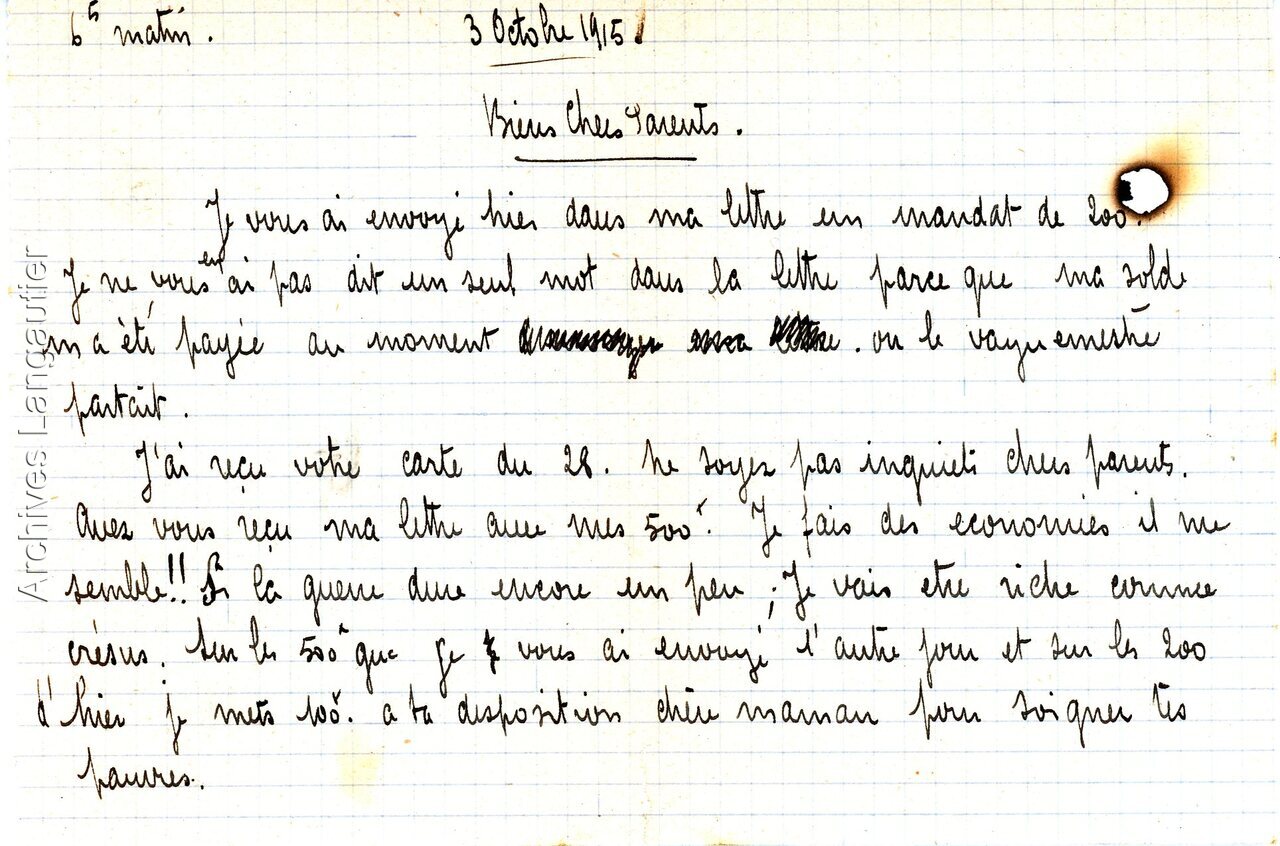 6 5 matin. 3 Octobre 1915
Biens Chers Parents.
Je vous ai envoyé hier dans ma lettre un mandat de 200.
Je ne vous en ai pas dit un seul mot dans la lettre parce que ma solde
m'a été payée au moment ou le vaguemestre
partait.
J'ai reçu votre carte du 28. Ne soyez pas inquiets chers parents.
Avez vous reçu ma lettre avec mes 500f. Je fais des economies il me
semble!! Si la guerre dure encore un peu ; Je vais etre riche comme
crésus. Sur les 500f que je vous ai envoyé l'autre jour et sur les 200
d'hier je mets 100f. a ta desposition chère maman pour soigner tes
pauvres.
Archives Langautier